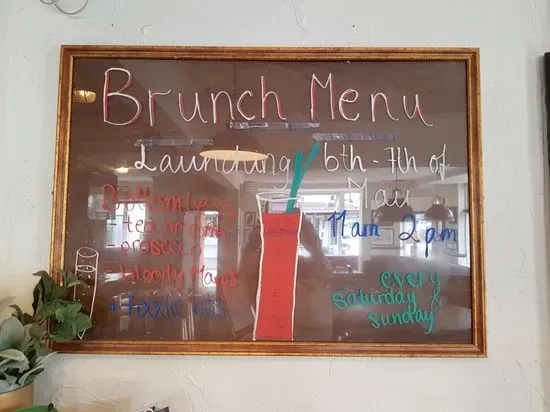 Brunch Menu
Launching 6th - 7th of
May
11am 2pm
Bottomless
- tea or coffee
- prosecco
- bloody Mary's
+ Foodie
every
Saturday &
Sunday